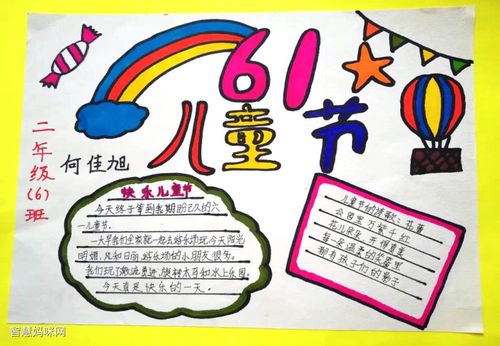 61
儿童节
二年级(6)班
何佳旭
快乐儿童节
今天终于等到期盼已久的六
一儿童节.
一大早我们全家就一起去游乐场玩今天阳光
明媚,风和日丽游乐场的小朋友很多。
我们玩了激流勇进,旋转木马和水上乐园。
今天真是快乐的一天。
儿童节的诗歌:花蕾
公园里万紫千红
花儿朵朵开得真美
每一朵温柔的花蕾里
都有孩子们的影子
智慧妈咪网